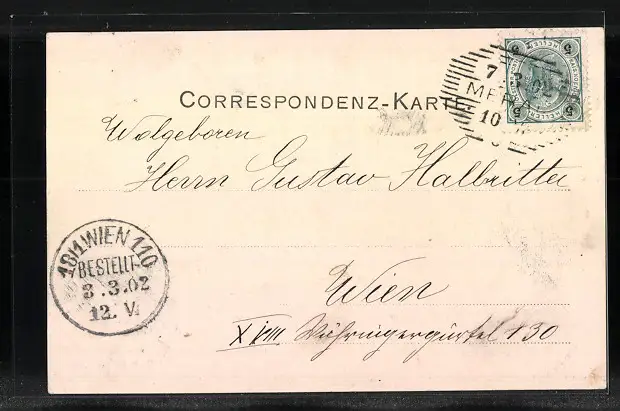 CORRESPONDENZ-KARTE
7 3 02
MERA
10
5 HELLER 5
Wolgeboren
Herrn Gustav Halbritter
18/1 WIEN 110
BESTELLT
8.3.02
12.V.
Wien
XVIII Währingergürtel 130